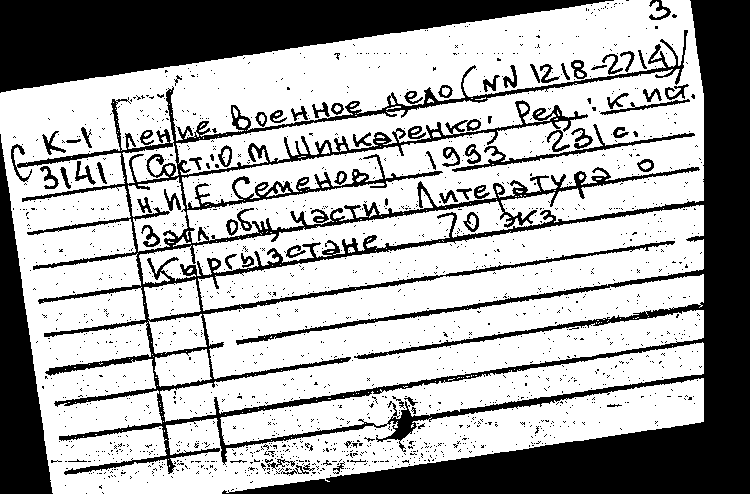 3.
ление. Военное дело (NN 1218-2714)/
С К-1 [Сост.: О. М. Шинкаренко; Ред.: к. ист.
3141 н. И. Е. Семенов]. 1993. 231 с.
Загл. общ. части: Литература о
Кыргызстане. 70 экз.